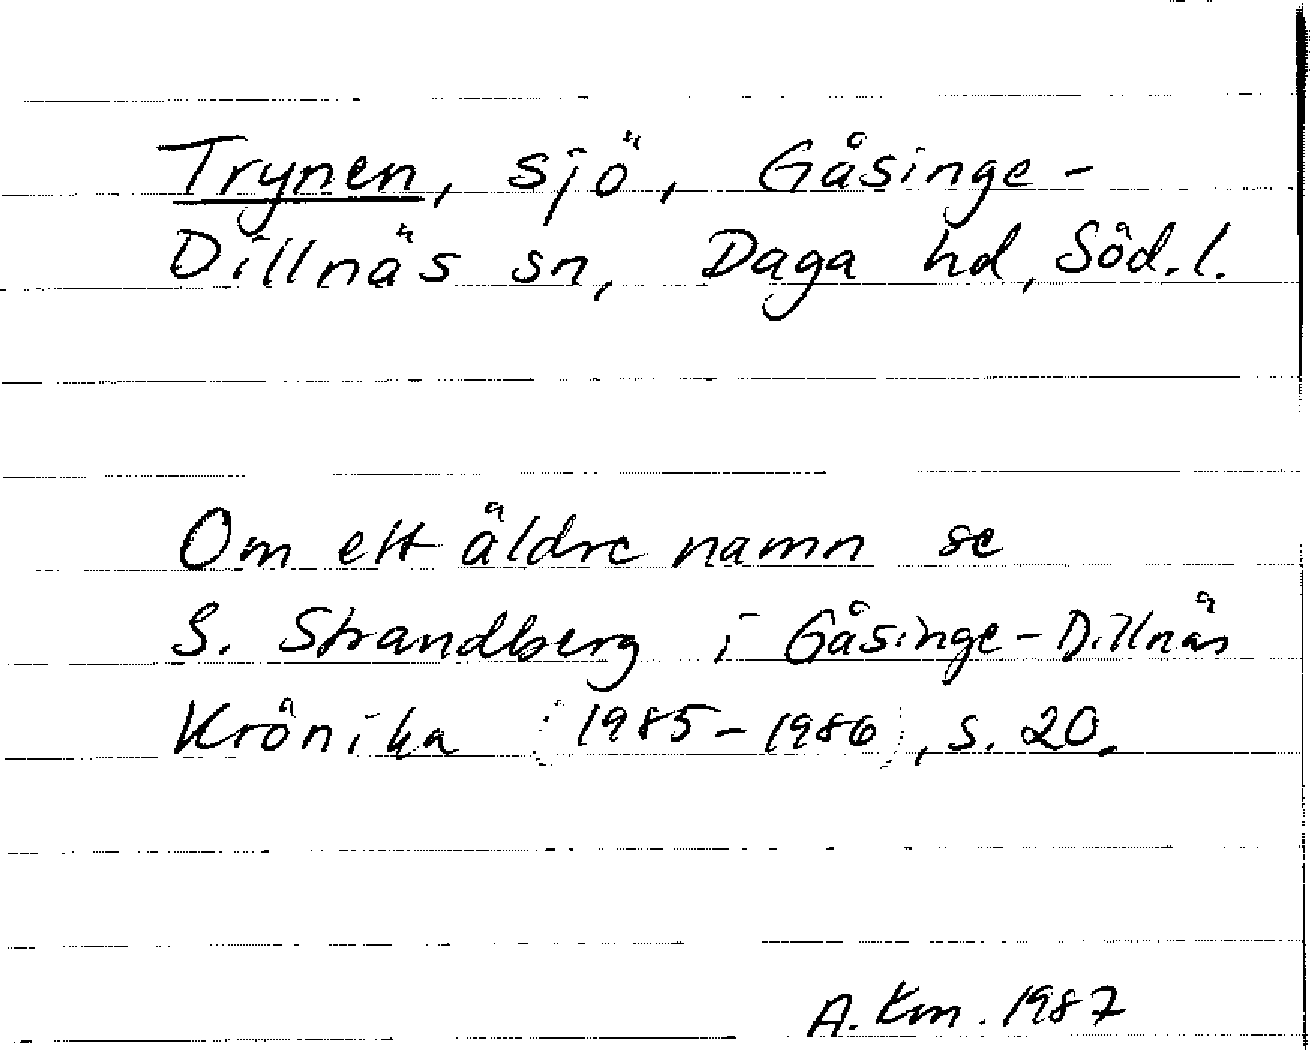 Trynen, sjö, Gåsinge-
Dillnäs sn, Daga hd, Söd. l.
Om ett äldre namn se
S. Strandberg i Gåsinge-Dillnäs
Krönika (1985-1986), s. 20.
A. Km. 1987